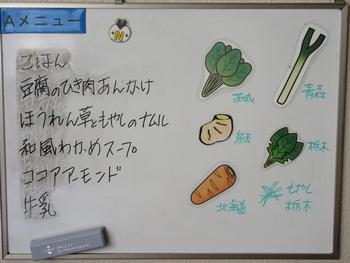 Aメニュー
N
ごはん
豆腐のひき肉あんかけ
ほうれん草ともやしのナムル
和風わかめスープ
ココアアーモンド
牛乳
茨城
青森
熊本
栃木
北海道
もやし
栃木